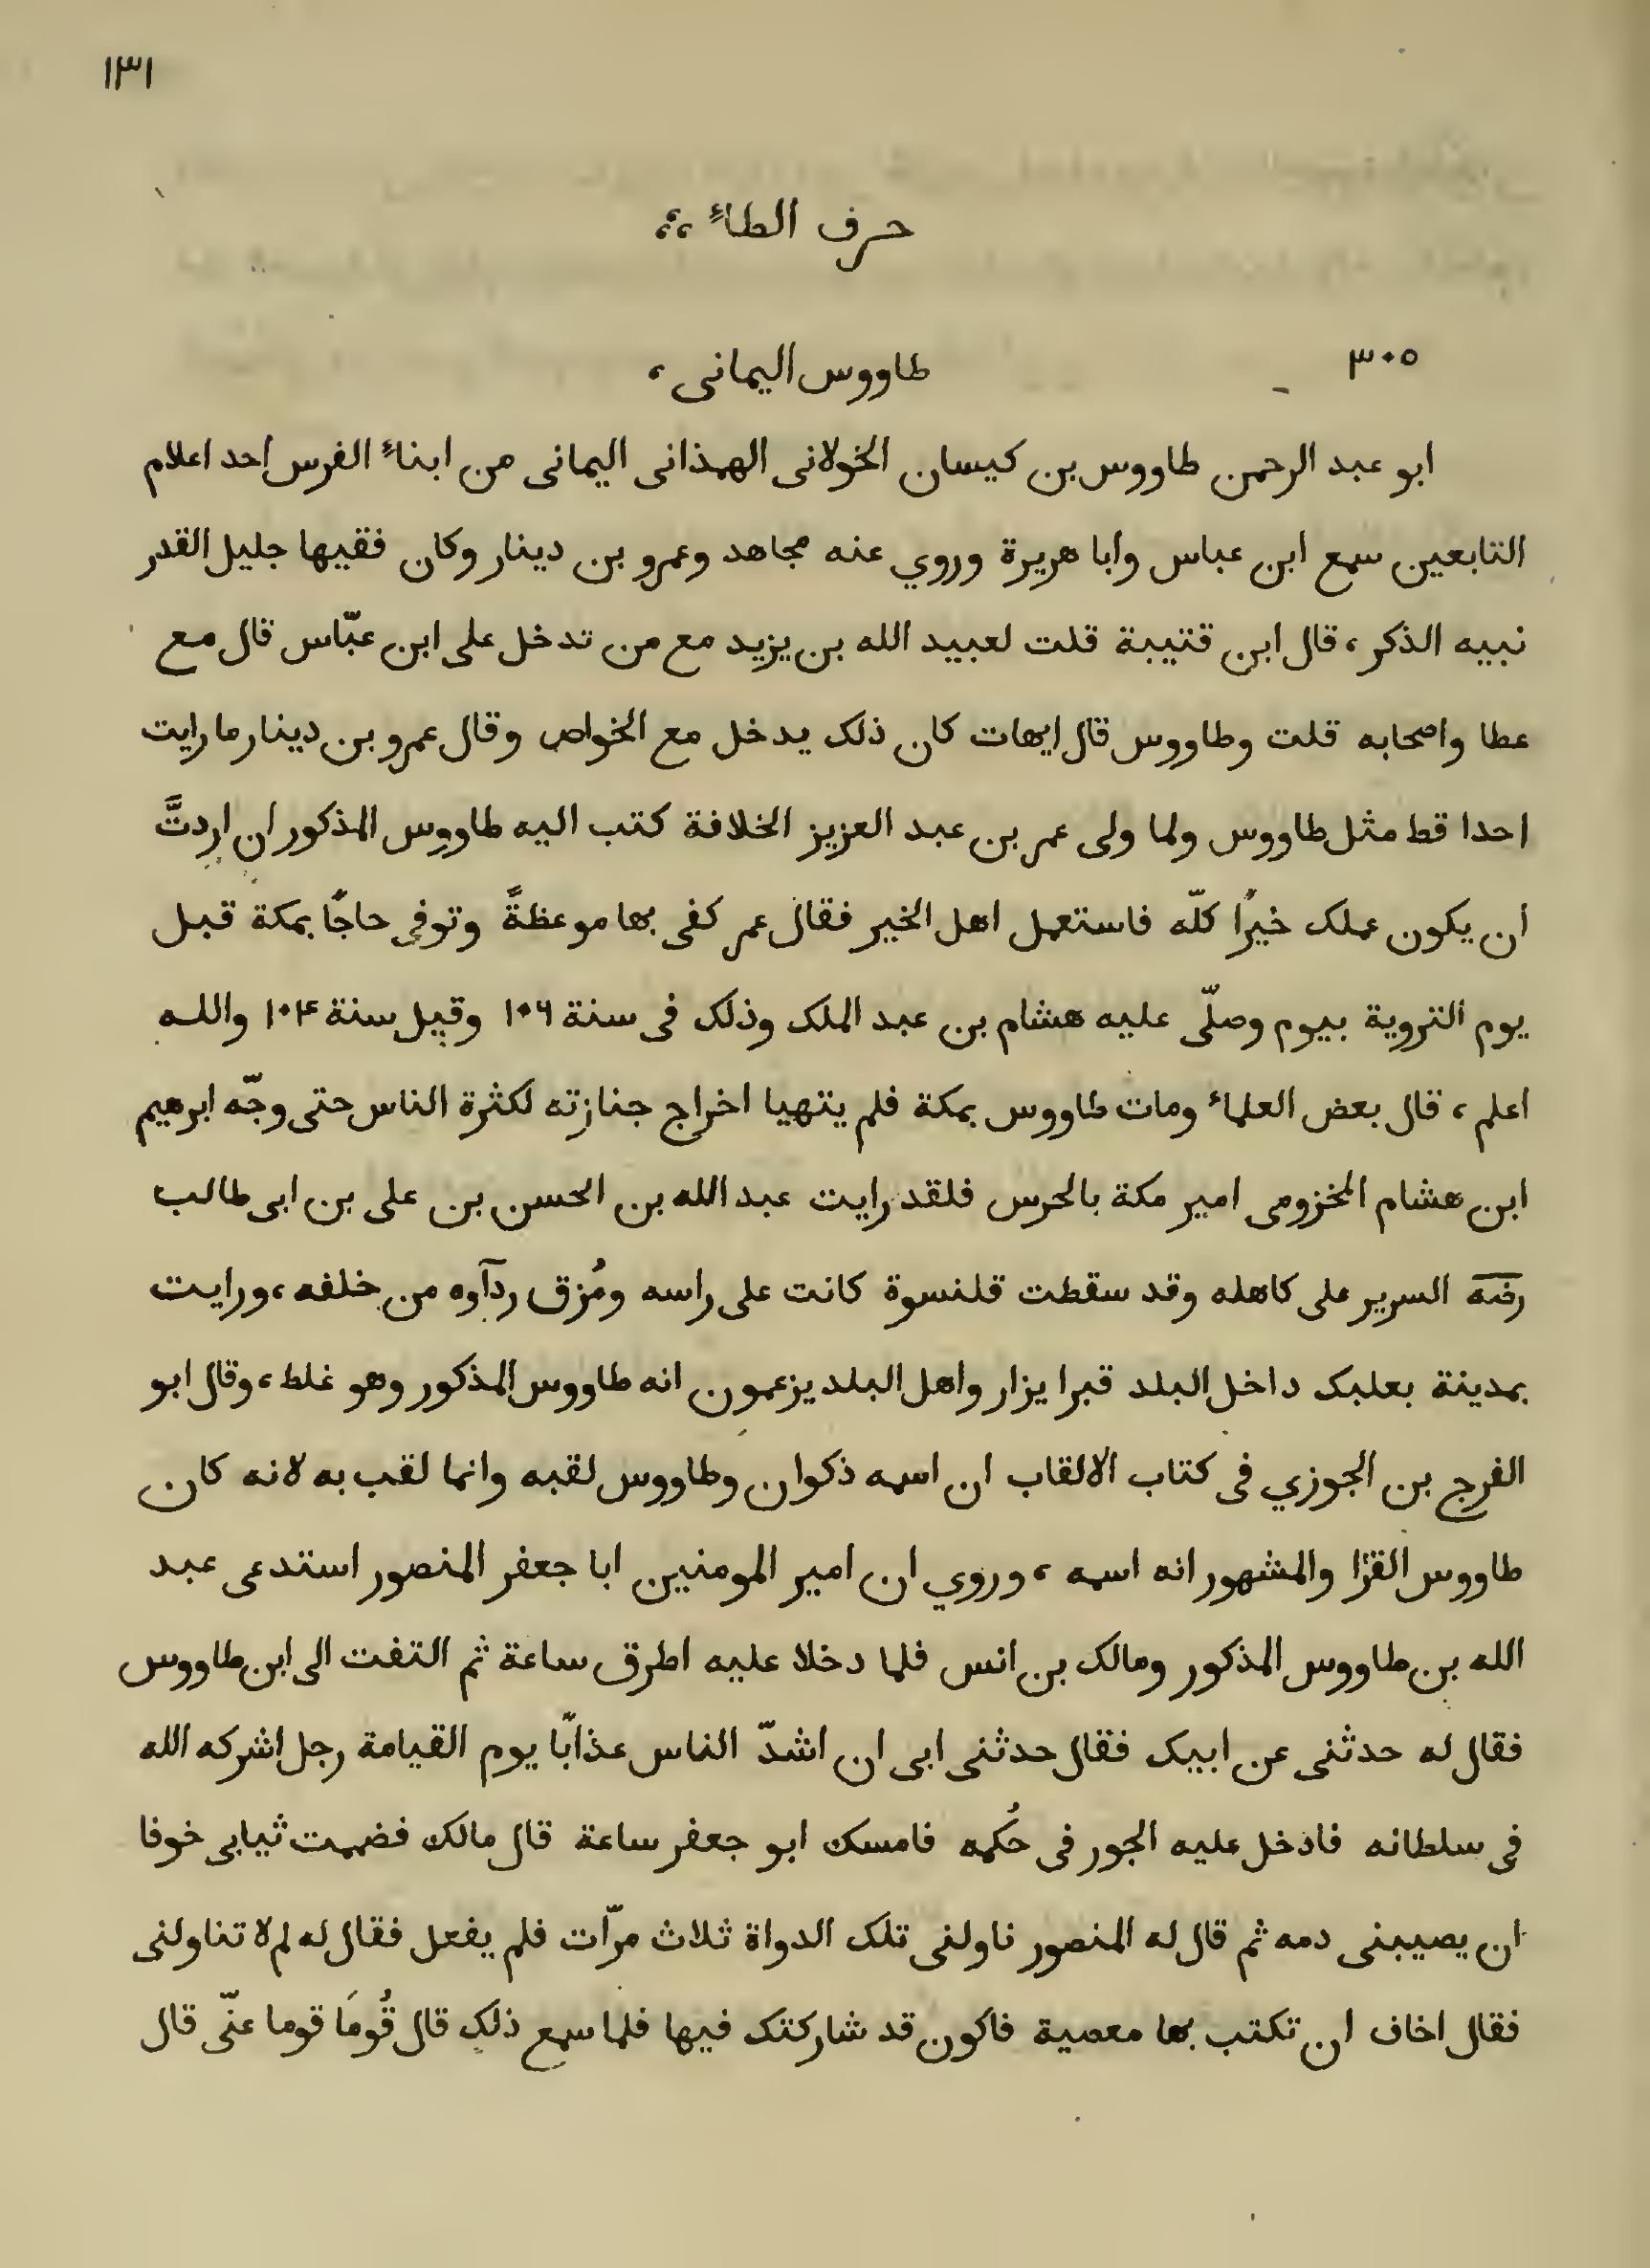 ١٣١
حرف الطاء ،،
٣٠٥ طاووس اليمانى ،
ابو عبد الرحمن طاووس بن كيسان الخولانى الهمذانى اليمانى من ابناء الفرس احد اعلام
التابعين سمع ابن عباس وابا هريرة وروي عنه مجاهد وعمرو بن دينار وكان فقيها جليل القدر
نبيه الذكر ، قال ابن قتيبة قلت لعبيد الله بن يزيد مع من تدخل على ابن عبّاس قال مع
عطا واصحابه قلت وطاووس قال ايهات كان ذلك يدخل مع الخواص وقال عمرو بن دينار ما رايت
احدا قط مثل طاووس ولما ولى عمر بن عبد العزيز الخلافة كتب اليه طاووس المذكور ان اردتَّ
ان يكون عملك خيرًا كلّه فاستعمل اهل الخير فقال عمر كفى بها موعظةً وتوفى حاجًا بمكة قبل
يوم التروية بيوم وصلّى عليه هشام بن عبد الملك وذلك فى سنة ١٠٦ وقيل سنة ١٠٤ والله
اعلم ، قال بعض العلماء ومات طاووس بمكة فلم يتهيا اخراج جنازته لكثرة الناس حتى وجّه ابرهيم
ابن هشام المخزومى امير مكة بالحرس فلقد رايت عبد الله بن الحسن بن على بن ابى طالب
رضه السرير على كاهله وقد سقطت قلنسوة كانت على راسه ومُزق ردآوه من خلفه ، ورايت
بمدينة بعلبك داخل البلد قبرا يزار واهل البلد يزعمون انه طاووس المذكور وهو غلط ، وقال ابو
الفرج بن الجوزي فى كتاب الالقاب ان اسمه ذكوان وطاووس لقبه وانما لقب به لانه كان
طاووس القرّا والمشهور انه اسمه ، وروي ان امير المومنين ابا جعفر المنصور استدعى عبد
الله بن طاووس المذكور ومالك بن انس فلما دخلا عليه اطرق ساعة ثم التفت الى ابن طاووس
فقال له حدثنى عن ابيك فقال حدثنى ابى ان اشدّ الناس عذابًا يوم القيامة رجل اشركه الله
فى سلطانه فادخل عليه الجور فى حُكمه فامسك ابو جعفر ساعة قال مالك فضممت ثيابى خوفا
ان يصيبنى دمه ثم قال له المنصور ناولنى تلك الدواة ثلاث مرّات فلم يفعل فقال له لم لا تناولنى
فقال اخاف ان تكتب بها معصية فاكون قد شاركتك فيها فلما سمع ذلك قال قُومَا قوما عنّى قال